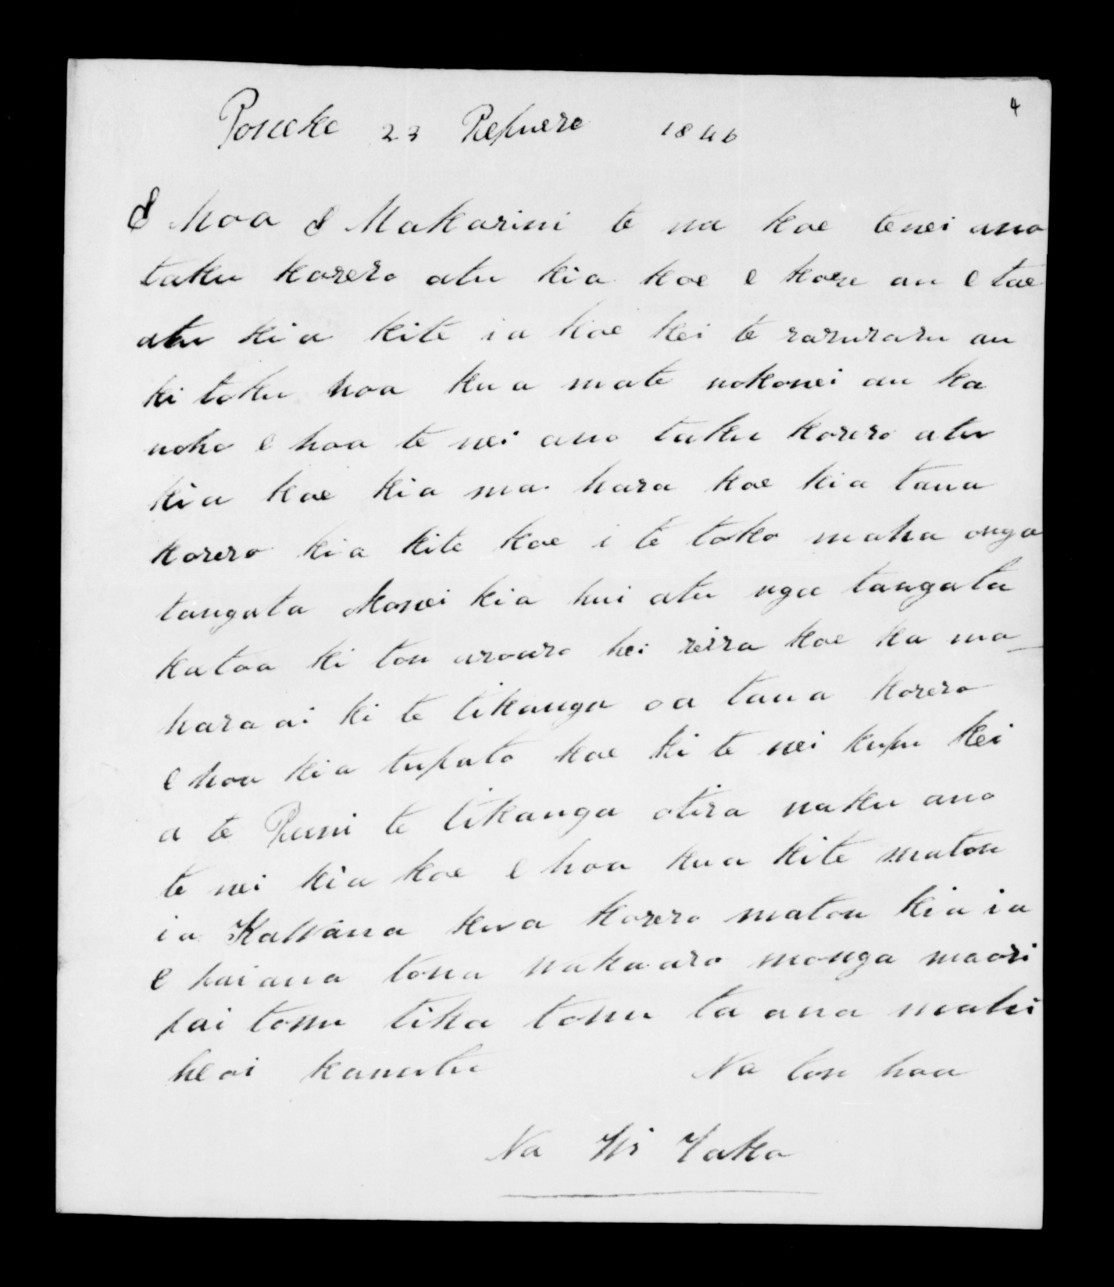 4
Poneke 23 Pepuere 1846
E hoa E Makarini te na koe tenei ano
taku korero atu kia koe e kore au e tae
atu kia kite ia koe kei te raruraru au
ki toku hoa kua mate nokonei au ka
noho e hoa te nei ano taku korero atu
kia koe kia ma hara koe kia taua
korero kia kite koe i te toko maha onga
tangata Konei kia hui atu nga tangata
katoa ki tou aroaro hei reira koe ka ma-
hara ai ki te tikanga oa taua korero
e hoa kia tupato koe ki te nei kupu kei
a te Puni te tikanga otira naku ano
te nei kia koe e hoa kua kite matou
ia Kawana kua korero matou kia ia
e pai ana tona wakaaro monga maori
pai tonu tika tonu ta ana mahi
heoi kamutu Na tou hoa
Na Wi Tako